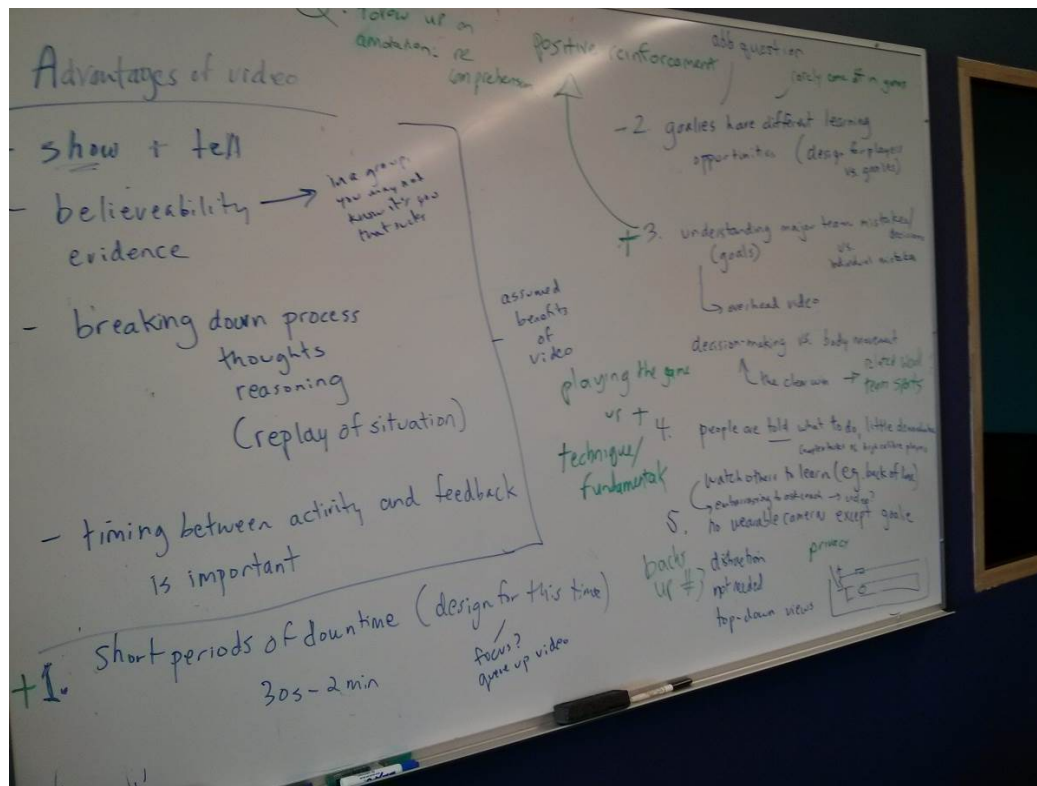 follow up on
annotation: re
comprehension
Advantages of video
- show + tell
- believeability →
evidence
in a group
you may not
know it's you
that sucks
- breaking down process
thoughts
reasoning
(replay of situation)
- timing between activity and feedback
is important
assumed
benefits
of
video
+1. Short periods of downtime (design for this time)
30s - 2 min
focus?
queue up video
positive reinforcement
add question
- 2. goalies have different learning
opportunities (design for players
vs. goalies)
+ 3. understanding major team mistakes/
decisions
(goals)
vs.
individual mistakes
overhead video
decision-making vs. body movement
the clear win →
team sports
playing the game
vs +
technique/
fundamentals
4. people are told what to do, little
watch others to learn (e.g. back of line)
5. no wearable camera except goalie
backs
up #3
distraction
not needed
top-down views
privacy